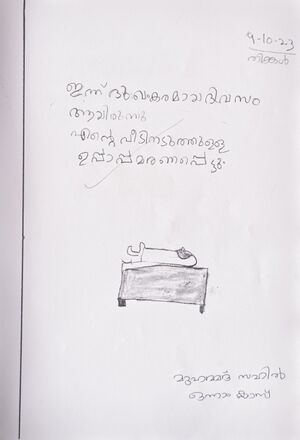 9-10-23
തിങ്കൾ
ഇന്ന് ദുഃഖകരമായ ദിവസം
ആയിരുന്നു
എന്റെ വീടിനടുത്തുള്ള
ഉപ്പാപ്പ മരണപ്പെട്ടു.
മുഹമ്മദ് സഹൽ
ഒന്നാം ക്ലാസ്സ്